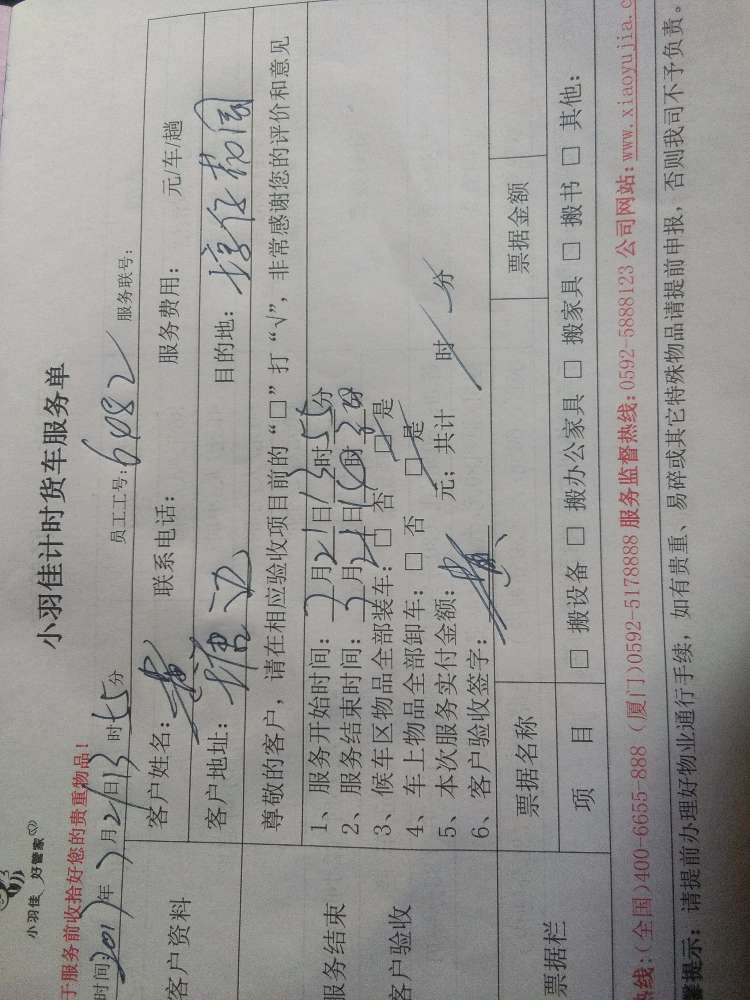 小羽佳 好管家
小羽佳计时货车服务单
于服务前收拾好您的贵重物品！
员工工号：6082 服务联号：
时间：2017年7月21日13时55分
客户资料
客户姓名： 联系电话： 服务费用： 元/车/趟
客户地址：塘边 目的地：
尊敬的客户，请在相应验收项目前的“□”打“√”，非常感谢您的评价和意见
服务结束
客户验收
1、服务开始时间：7月21日13时55分
2、服务结束时间：7月21日16时30分
3、候车区物品全部装车：□ 否 □ 是
4、车上物品全部卸车：□ 否 □ 是
5、本次服务实付金额： 元；共计 时 分
6、客户验收签字：
票据栏
票据名称 票据金额
项 目 □ 搬设备 □ 搬办公家具 □ 搬家具 □ 搬书 □ 其他：
热线：(全国)400-6655-888 (厦门)0592-5178888 服务监督热线：0592-5888123 公司网站：www.xiaoyujia.c
馨提示：请提前办理好物业通行手续，如有贵重、易碎或其它特殊物品请提前申报，否则我司不予负责。